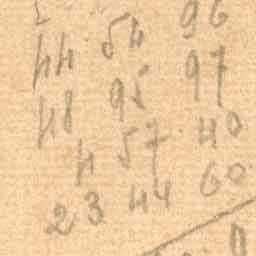 96
44 54 97
48 95 40
4 57 60
23 44